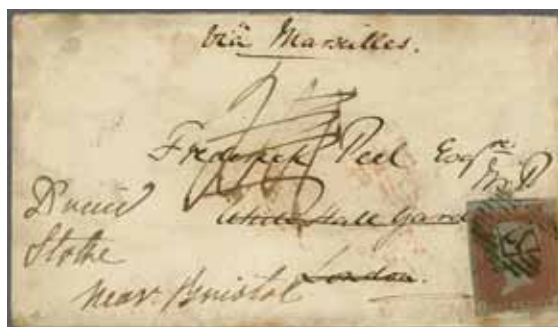 via Marseilles.
Frederick Peel Esqre.
M.P.
White Hall Gard
London.
Stoke
near Bristol